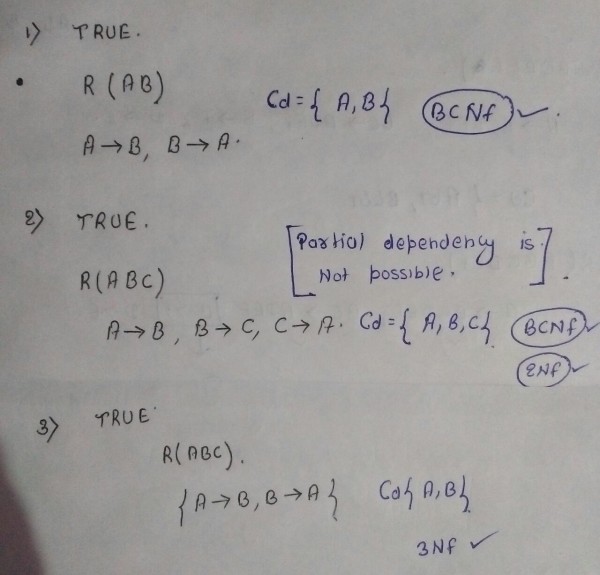 1) TRUE.
• R (AB) Cd = { A, B } BCNf ✓.
A → B, B → A.
2) TRUE.
[Partial dependency is Not possible.].
R(ABC)
A → B, B → C, C → A. Cd = { A, B, C } BCNf ✓
2Nf ✓
3) TRUE
R(ABC).
{ A → B, B → A } Cd { A, B }
3Nf ✓